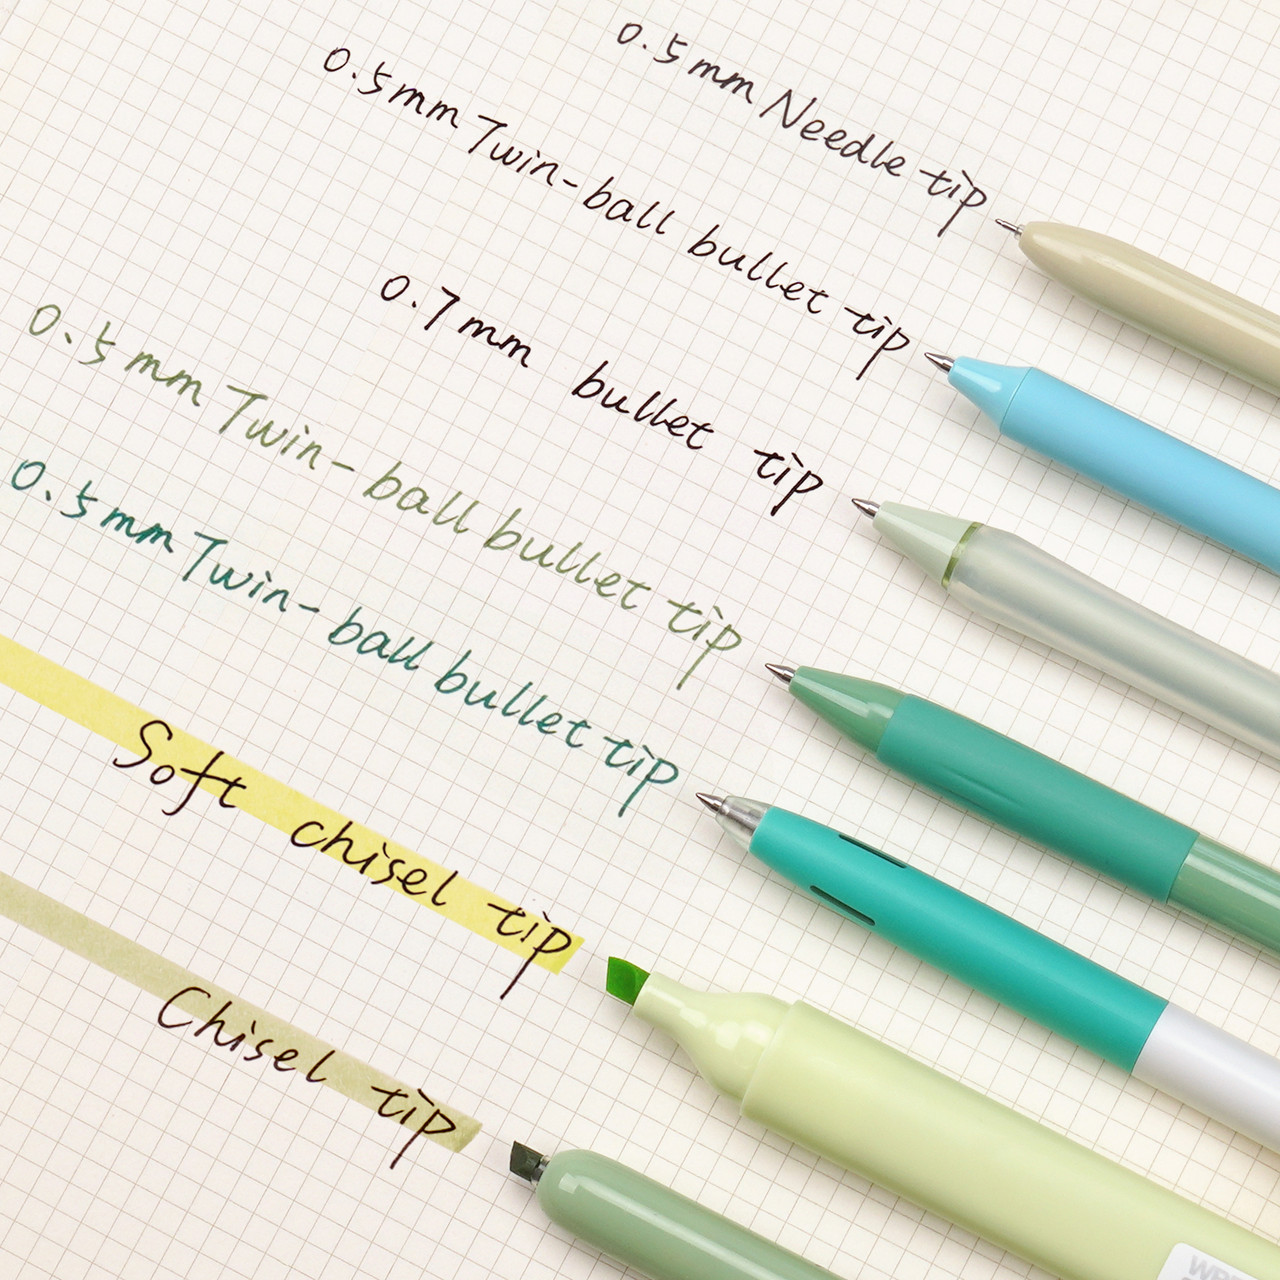 0.5mm Needle tip
0.5mm Twin-ball bullet tip
0.7mm bullet tip
0.5mm Twin-ball bullet tip
0.5mm Twin-ball bullet tip
Soft chisel tip
Chisel tip